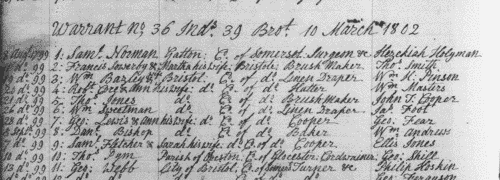 Warrant no 36 Inds. 39 Brot. 10 March 1802
augt 99 1: Saml. Norman Yatton Co. of Somerset Surgeon & Hezekiah Holyman
do. 99 2: Francis & Martha his wife Bristol Brush Maker Thos. Smith
do. 99 3: Wm. Bristol Co. of do. Linen Draper Wm. K. Pinson
do. 99 4: Robt. & Ann his wife do. Co. of do. Hatter Wm. Masters
do. 99 5: Thos. Jones do. Co. of do. Brush Maker John T. Cooper
do. 99 6: Wm. Sweetman do. Co. of do. Linen Draper Jas. Foot
do. 99 7: Geo: Lewis & Ann his wife do. Co. of do. Cooper Geo: Fear
Sept. 99 8: Danl. Bishop do. Co. of do. Baker Wm. Andrews
do. 99 9: Saml. Fletcher & Sarah his wife do. Co. of do. Cooper Ellis Jones
do. 99 10: Thos. Pym Parish of Co. of Glocester Cordwainer Geo: Shilt
do. 99 11: Geo: Webb City of Bristol, Co. of Turner &c. Philip Hoskin
Geo: Ferguson